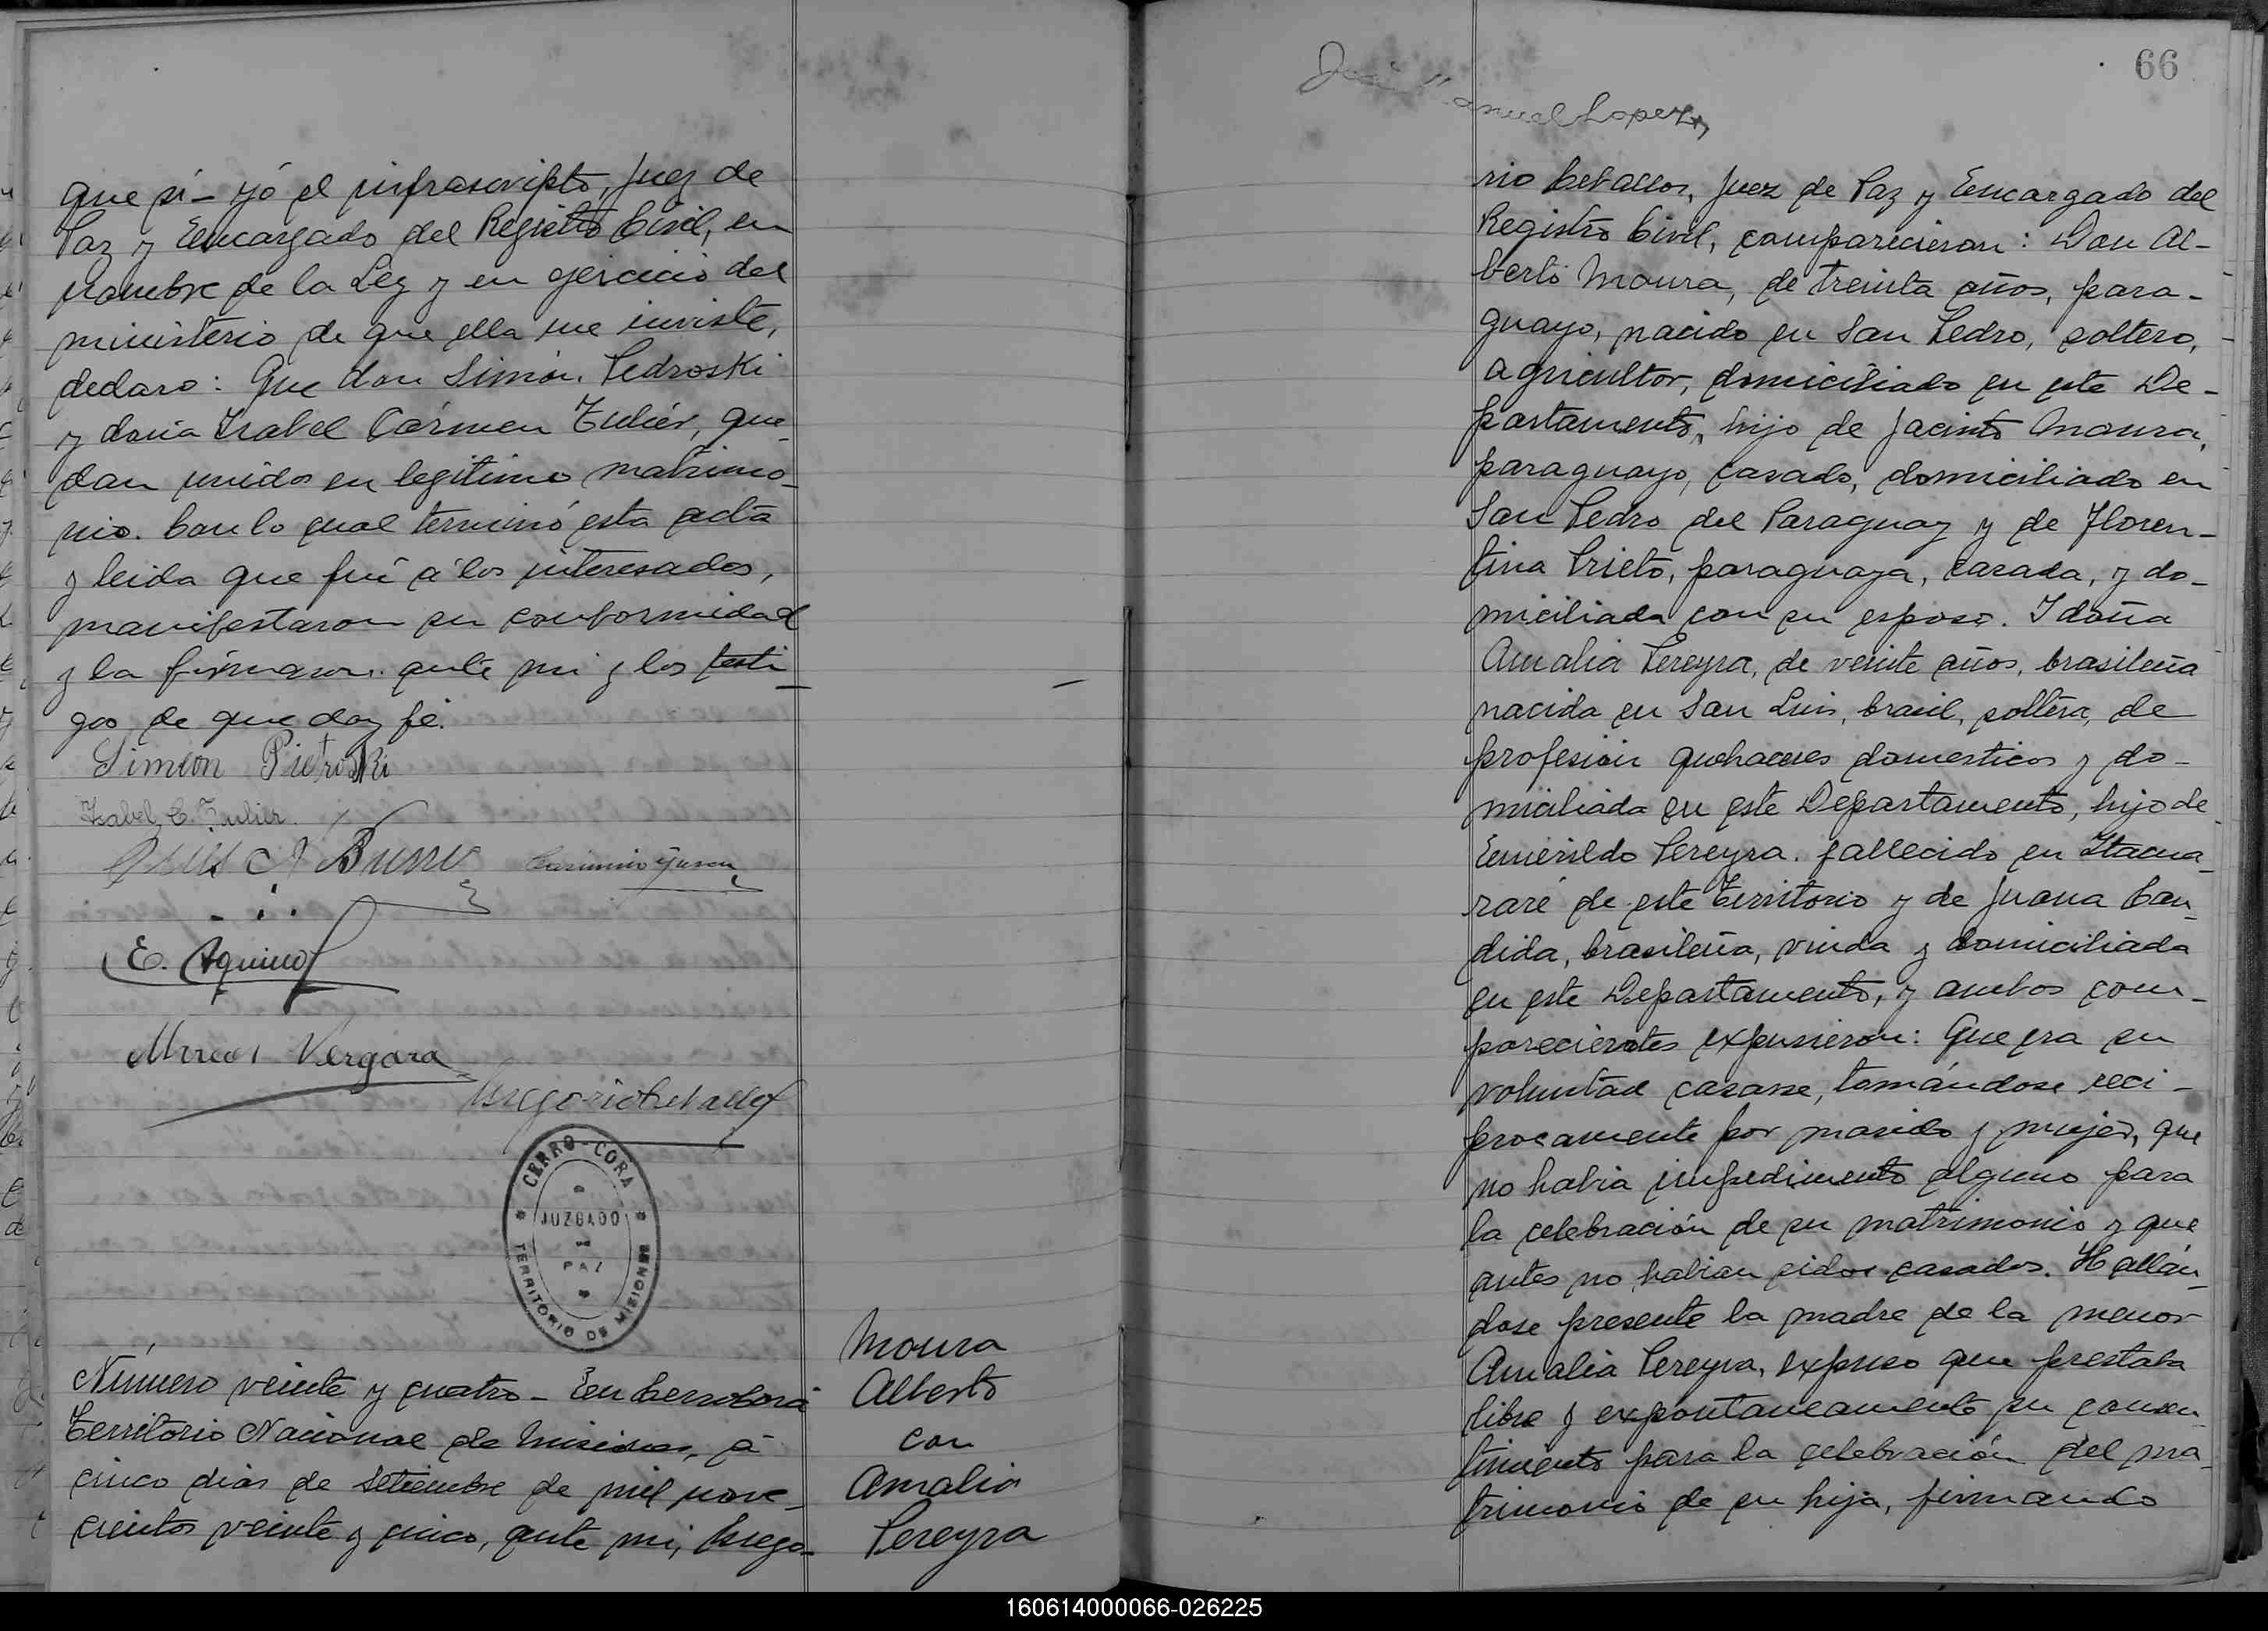 que si - yó el infrascripto, Juez de
Paz y Encargado del Registro Civil, en
nombre de la Ley y en ejercicio del
ministerio de que ella me inviste,
declaro: Que don Simón Pedroski
y doña Isabel Cármen Tulier, que-
dan unidos en legitimo matrimo-
nio. Con lo cual terminó esta acta
y leida que fué á los interesados,
manifestaron su conformidad
y la firmaron ante mi y los testi-
gos de que doy fé.
Simeon Pietroski
Isabel C. Tulier
A Bruno
E. Aquino
Vergara
CERRO-CORA
JUZGADO
DE
PAZ
TERRITORIO DE MISIONES
Número veinte y cuatro - En Cerro Corá
Territorio Nacional de Misiones, á
cinco dias de Setiembre de mil nove-
cientos veinte y cinco, ante mi, Grego-
Moura
Alberto
con
Amalia
Pereyra
66
José Manuel Lopez
rio Cevallos, Juez de Paz y Encargado del
Registro Civil, comparecieron: Don Al-
berto Moura, de treinta años, para-
guayo, nacido en San Pedro, soltero,
agricultor, domiciliado en este De-
partamento, hijo de Jacinto Moura,
paraguayo, casado, domiciliado en
San Pedro del Paraguay y de Floren-
tina Prieto, paraguaya, casada, y do-
miciliada con su esposo. I doña
Amalia Pereyra, de veinte años, brasileña
nacida en San Luis, brasil, soltera, de
profesión quehaceres domesticos y do-
miciliada en este Departamento, hijo de
Emerildo Pereyra. fallecido en Itacua-
raré de este Territorio y de Juana Can-
dida, brasileña, viuda y domiciliada
en este Departamento, y ambos com-
parecientes expusieron: Que era su
voluntad casarse, tomándose reci-
procamente por marido y mujer, que
no habia impedimento alguno para
la celebración de su matrimonio y que
antes no habian sidos casados. Hallán-
dose presente la madre de la menor
Amalia Pereyra, expuso que prestaba
libre y expontaneamente su consen-
timiento para la celebración del ma-
trimonio de su hija, firmando
160614000066-026225